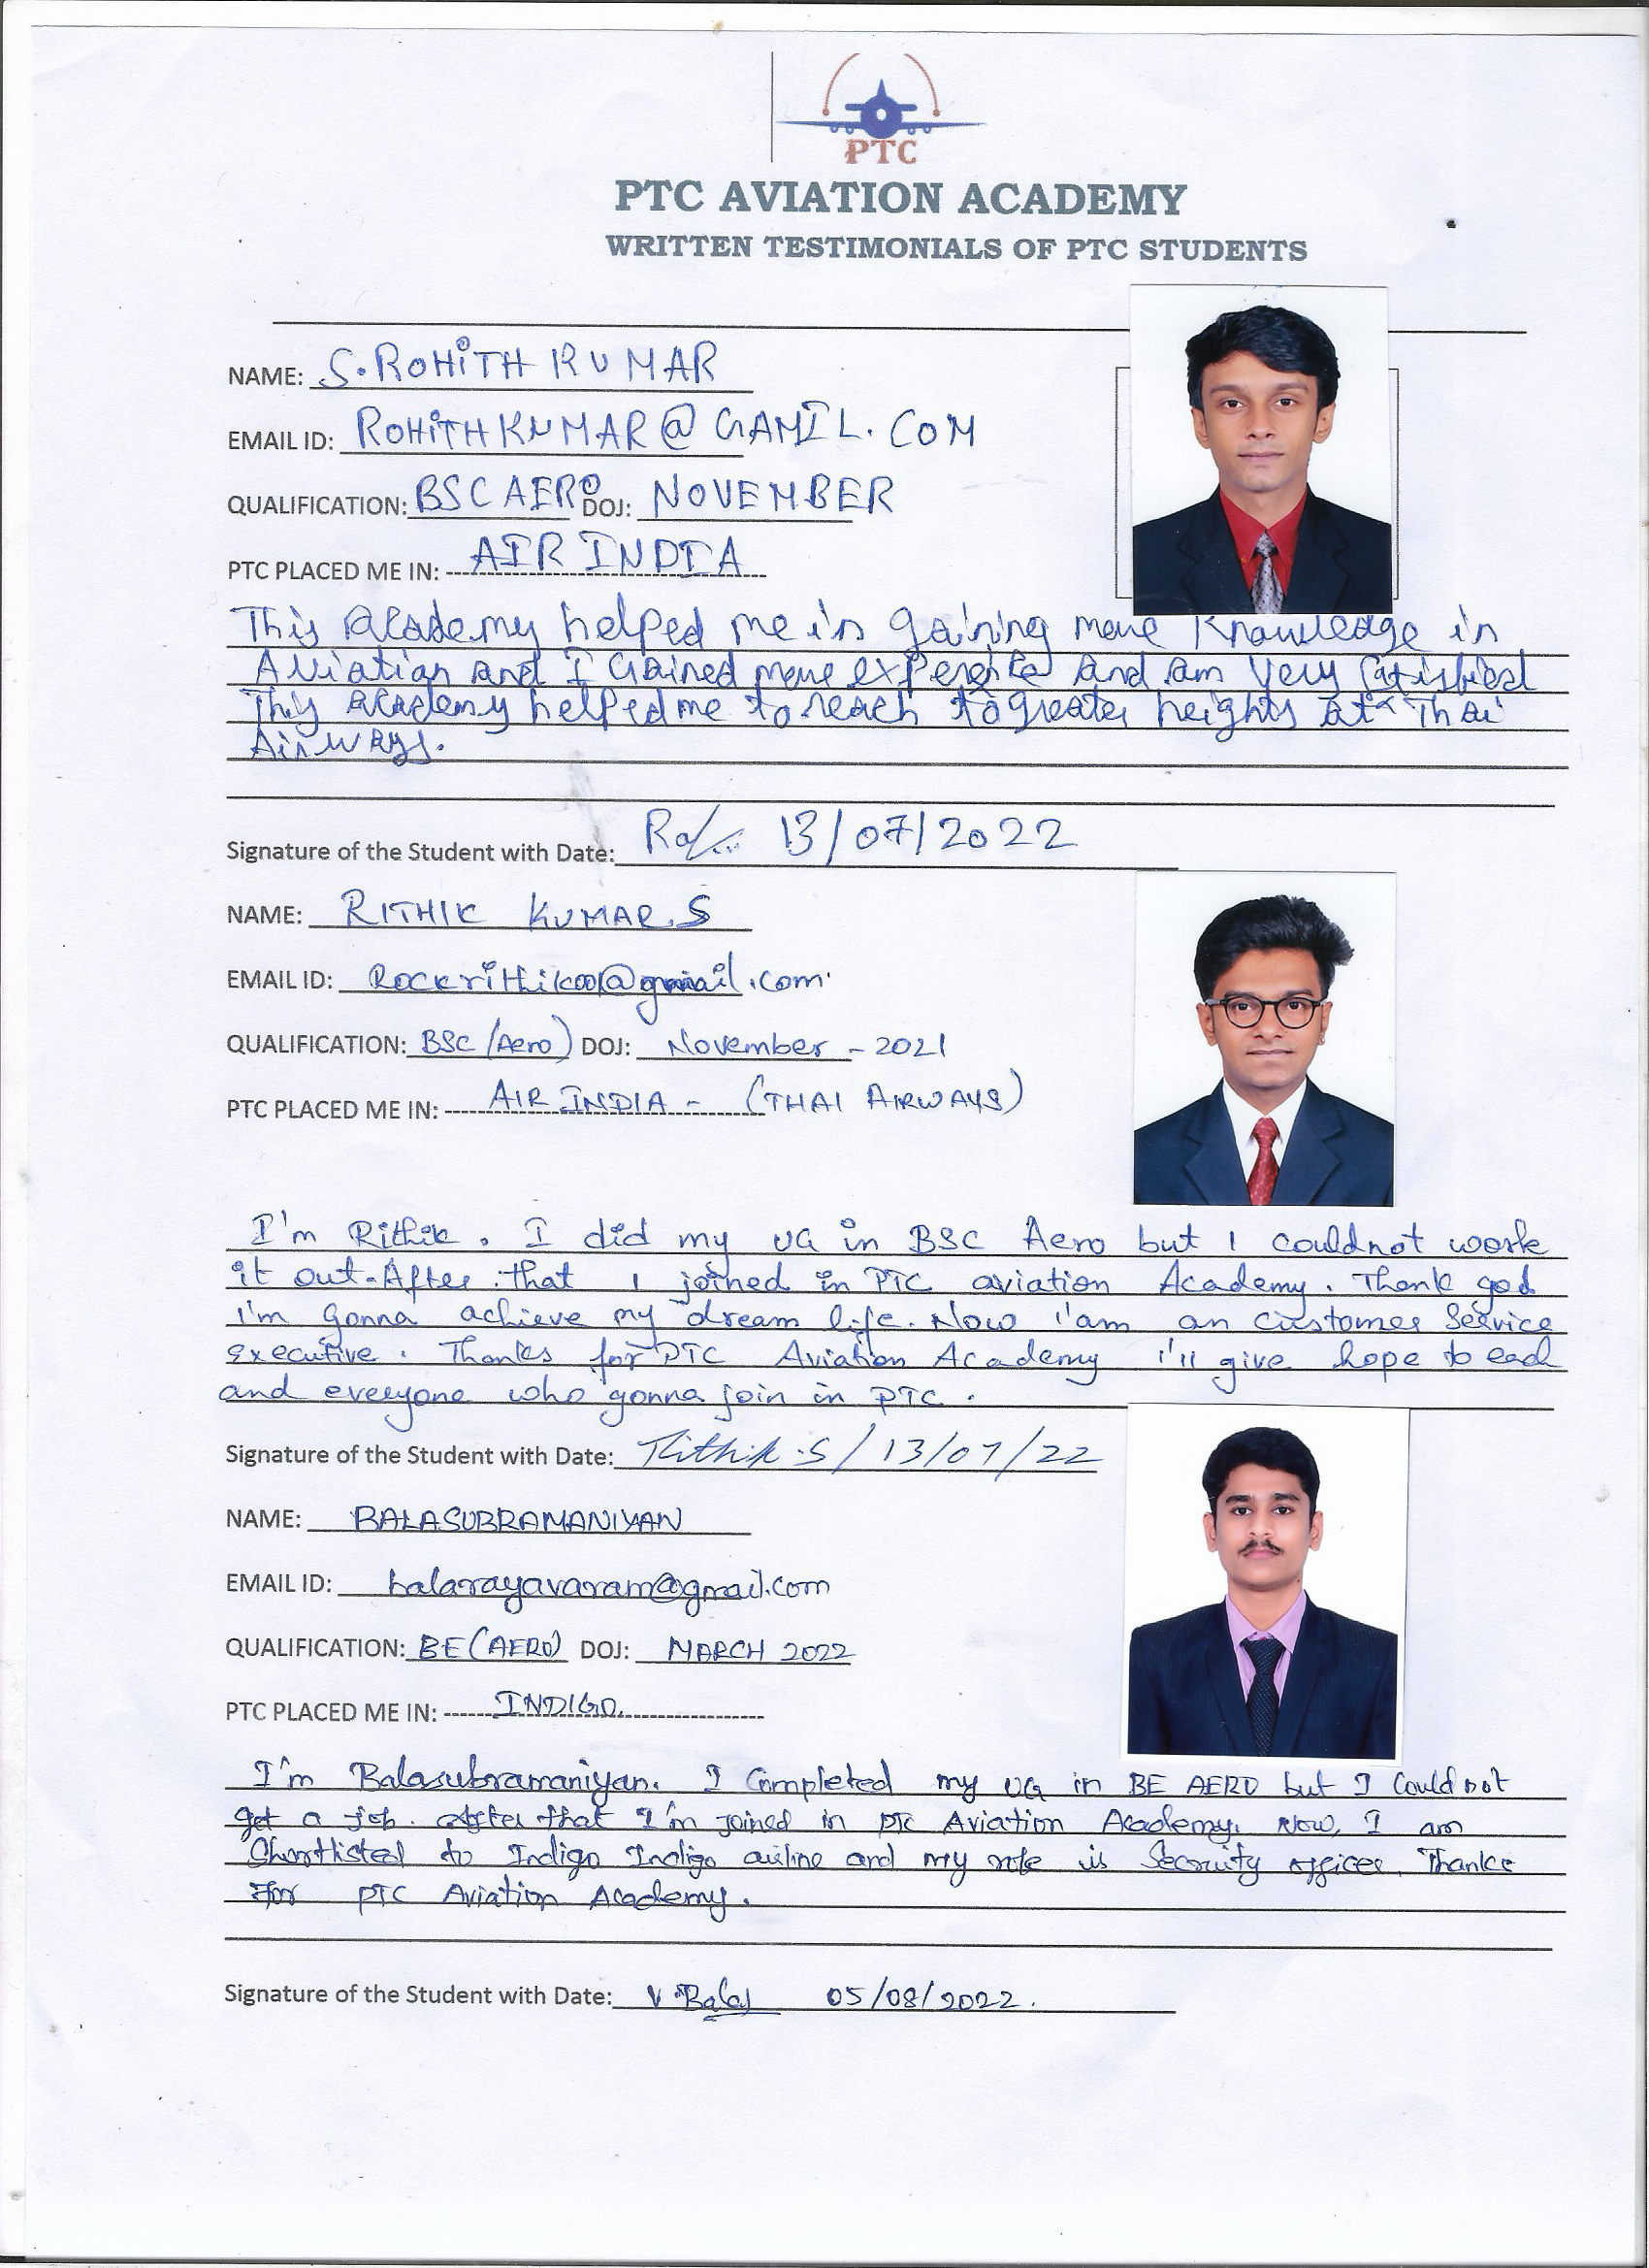 PTC
PTC AVIATION ACADEMY
WRITTEN TESTIMONIALS OF PTC STUDENTS
NAME: S.ROHiTH KUMAR
EMAIL ID: ROHiTHKUMAR@GAMIL.COM
QUALIFICATION: BSC AERO DOJ: NOVEMBER
PTC PLACED ME IN: AIR INDIA
This academy helped me in gaining more knowledge in
Aviation and I gained more experience and am very satisfied
This academy helped me to reach to greater heights at Thai
Airways.
Signature of the Student with Date: 13/07/2022
NAME: RITHIK KUMAR.S
EMAIL ID: Rockrithik001@gmail.com
QUALIFICATION: BSC (Aero) DOJ: November - 2021
PTC PLACED ME IN: AIR INDIA - (THAI AIRWAYS)
I'm Rithik. I did my UG in BSC Aero but I couldnot work
it out. After that I joined in PTC aviation Academy. Thank god
I'm gonna achieve my dream life. Now I'am an customer Service
executive. Thanks for PTC Aviation Academy I'll give hope to each
and everyone who gonna join in PTC.
Signature of the Student with Date: Rithik.S / 13/07/22
NAME: BALASUBRAMANIYAN
EMAIL ID: balarayavaram@gmail.com
QUALIFICATION: BE (AERO) DOJ: MARCH 2022
PTC PLACED ME IN: INDIGO.
I'm Balasubramaniyan. I Completed my UG in BE AERO but I Could not
get a job. After that I'm joined in PTC Aviation Academy. Now, I am
Shortlisted to Indigo Indigo airline and my role is Security officer. Thanks
For PTC Aviation Academy.
Signature of the Student with Date: V.Bala 05/08/2022.